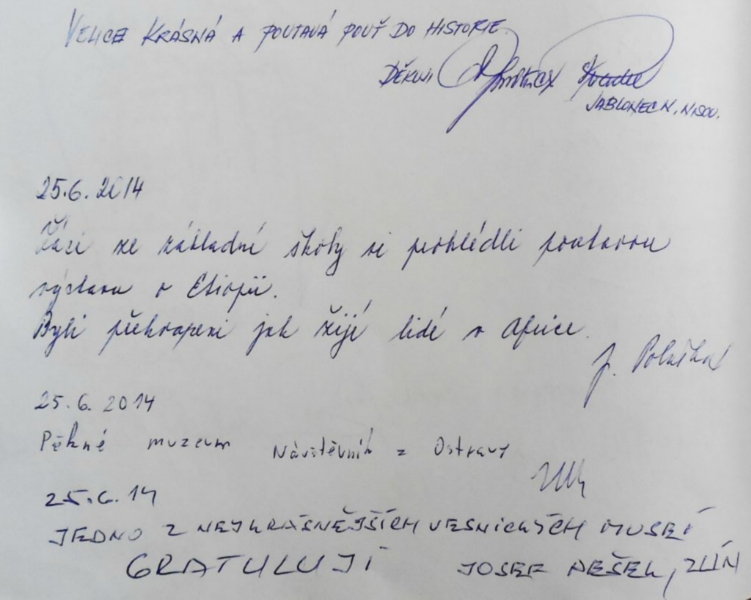 VELICE KRÁSNÁ A POUTAVÁ POUŤ DO HISTORIE.
DĚKUJI
JABLONEC N. NISOU.
25.6. 2014
Žáci ze základní školy si prohlédli poutavou
výstavu o Etiopii.
Byli překvapeni jak žijí lidé v Africe.
J. Polaška
25.6. 2014
Pěkné muzeum Návštěvník z Ostravy
25.6.14
JEDNO Z NEJKRÁSNĚJŠÍCH VESNICKÝCH MUSEÍ
GRATULUJI JOSEF PEŠEK, ZLÍN